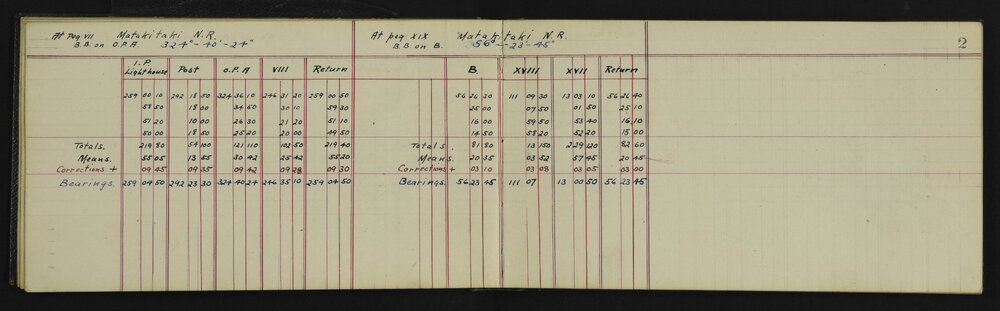 At peg VII Matakitaki N.R.
B.B. on O.P.A. 324°-40'-24"
I.P. Lighthouse Post O.P.A VIII Return
259 00 10 292 18 50 324 36 10 246 31 20 259 00 50
58 50 18 00 34 50 30 10 59 30
51 20 10 00 26 30 21 20 51 10
50 00 18 50 25 20 20 00 49 50
Totals. 219 80 54 100 121 110 102 50 219 40
Means. 55 05 13 55 30 42 25 42 55 20
Corrections + 09 45 09 35 09 42 09 28 09 30
Bearings. 259 04 50 292 23 30 324 40 24 246 35 10 259 04 50
At peg XIX Matakitaki N.R.
B.B on B. 56°-23'-45"
B. XVIII XVII Return
56 26 20 111 09 30 13 03 10 56 26 40
25 00 07 50 01 50 25 10
16 00 59 50 53 40 16 10
14 50 58 20 52 20 15 00
Totals. 81 80 13 150 229 120 82 60
Means. 20 35 03 52 57 45 20 45
Corrections + 03 10 03 08 03 05 03 00
Bearings. 56 23 45 111 07 13 00 50 56 23 45
2